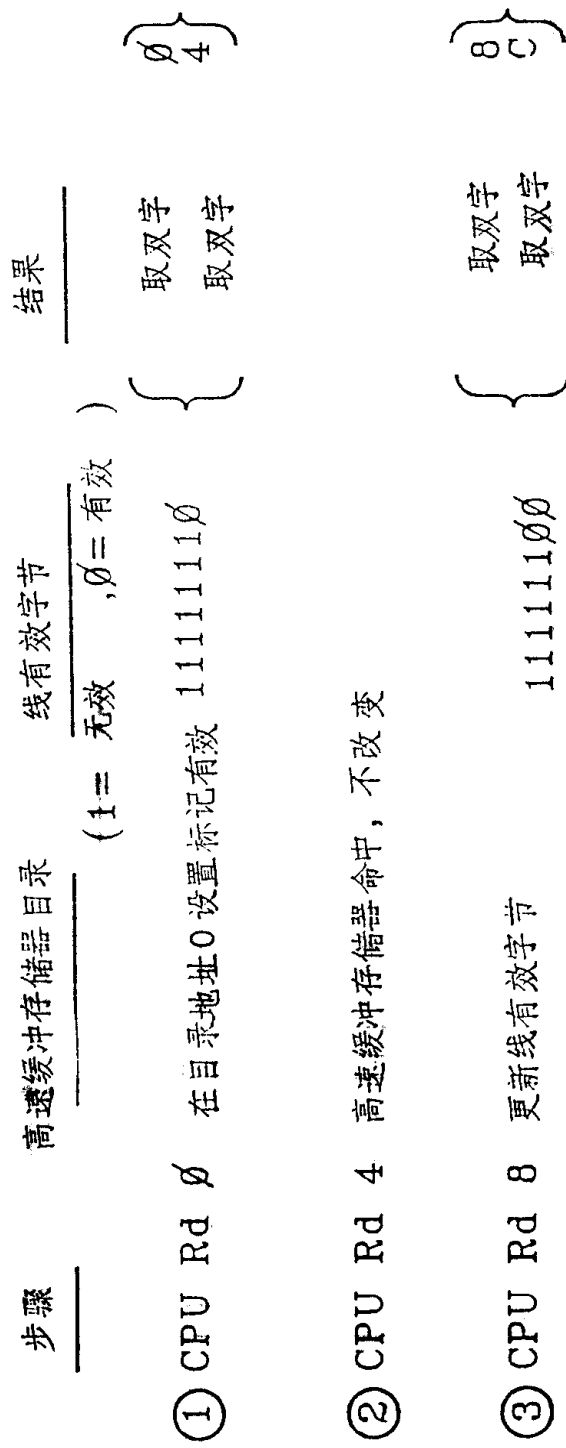 步骤 高速缓冲存储器目录 线有效字节 结果
(1= 无效 ,Ø=有效 )
① CPU Rd Ø 在目录地址0设置标记有效 1111111Ø { 取双字 Ø }
取双字 4
② CPU Rd 4 高速缓冲存储器命中，不改变
③ CPU Rd 8 更新线有效字节 111111ØØ { 取双字 8 }
取双字 C